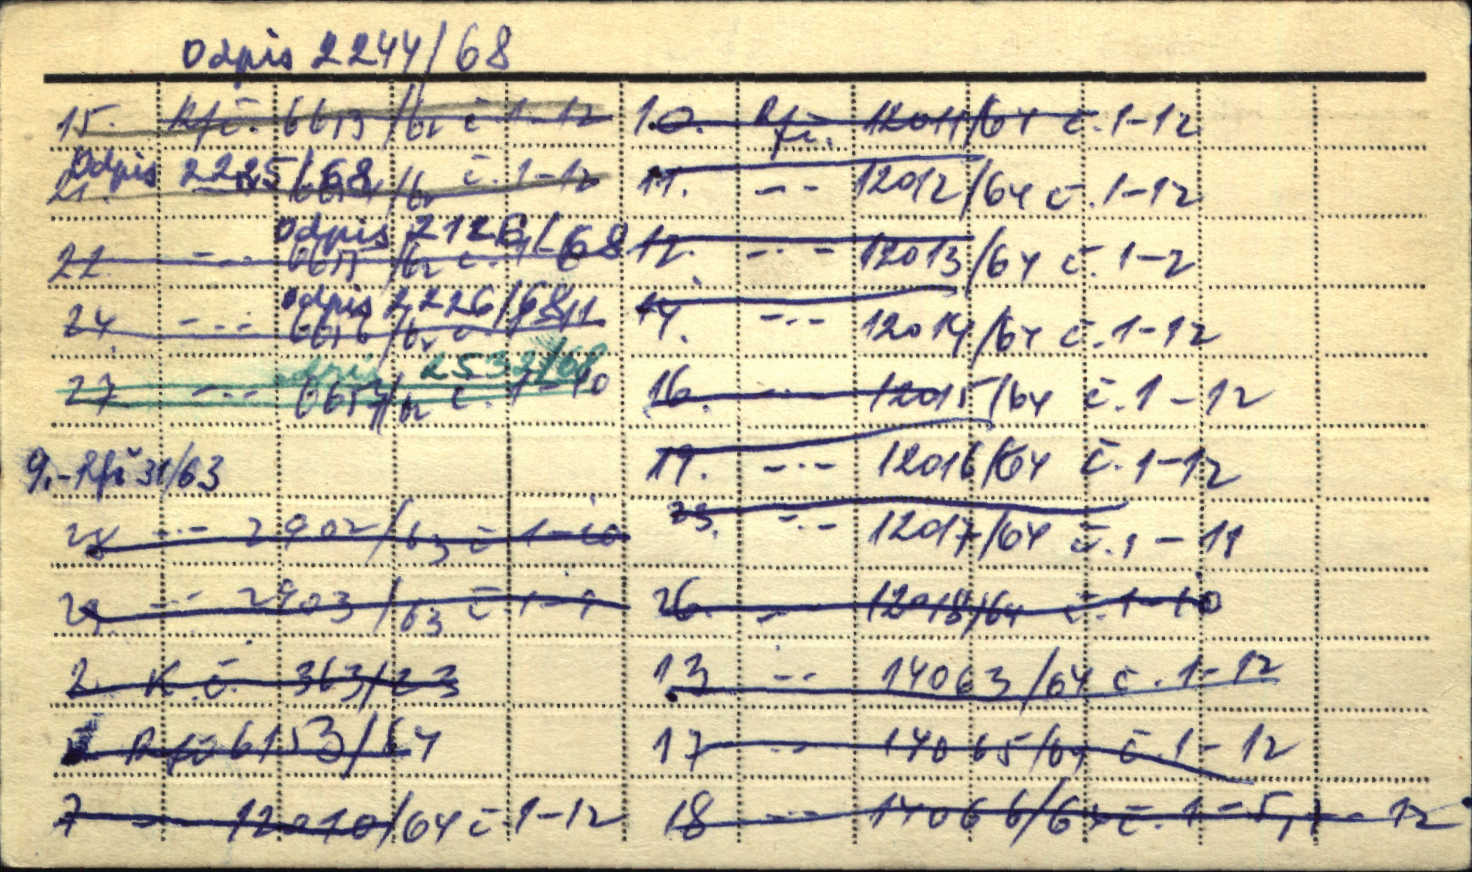 Odpis 2244/68
15. Rfč. 6613/62 č 1-12
Odpis 2225/68
21. č. 1-12
Odpis 2126/68
22. -..- 6615/62 č.
Odpis 2226/68
24. -..- 6616/62
2532/68
27 -..- č. 1-10
9.- Rfč 31/63
28 -..- 2902/63 č 1-10
29. -..- 2903/63 č 1-9
2. K.č. 363/23
Rfč 6153/64
7 -..- 12010/64 č 1-12
10. Rfč. 12011/64 č. 1-12
11. -..- 12012/64 č. 1-12
12. -..- 12013/64 č. 1-2
14. -..- 12014/64 č. 1-12
16. -..- 12015/64 č. 1-12
19. -..- 12016/64 č. 1-12
23. -..- 12017/64 č. 1-11
26. -..- 12018/64 č. 1-10
13 -..- 14063/64 č. 1-12
17 -..- 14065/64 č. 1-12
18 -..- 14066/64 č. 1-5, - 12